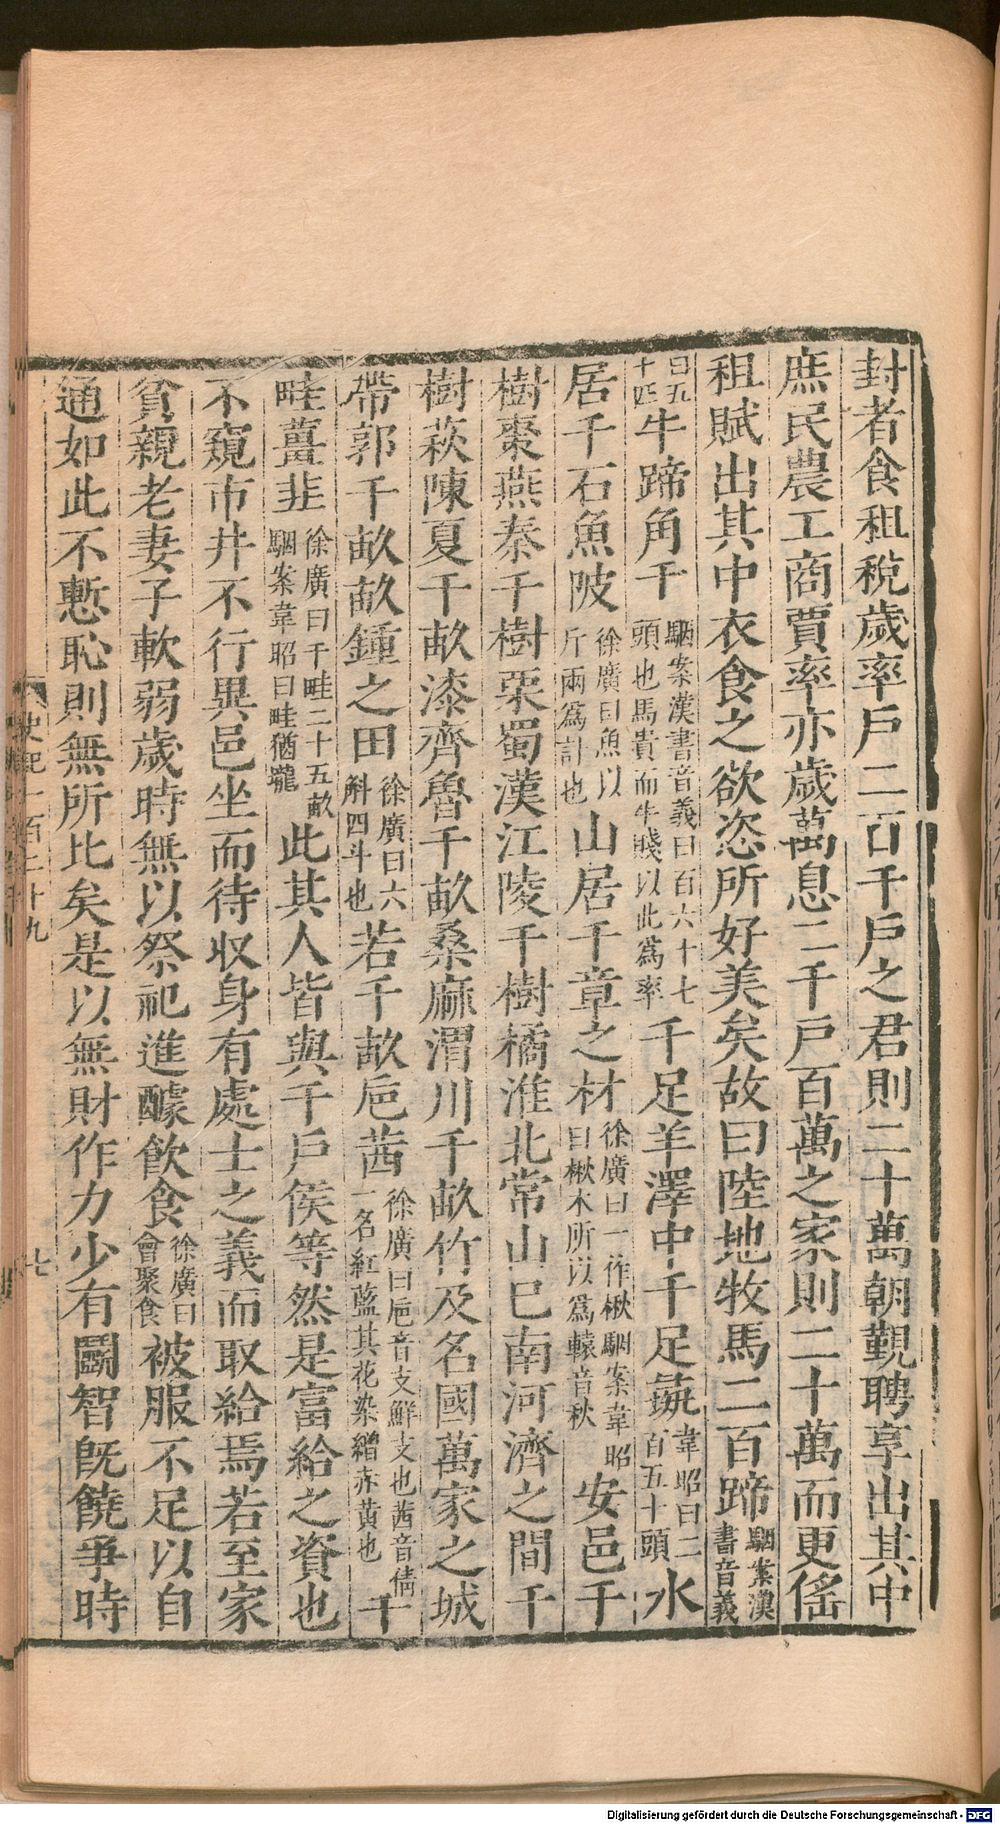 封者食租稅歲率戶二百千戶之君則二十萬朝覲聘享出其中
庶民農工商賈率亦歲萬息二千戶百萬之家則二十萬而更傜
租賦出其中衣食之欲恣所好美矣故曰陸地牧馬二百蹄駰案漢書音義
曰五十匹牛蹄角千駰案漢書音義曰百六十七頭也馬貴而牛賤以此爲率千足羊澤中千足彘韋昭曰二百五十頭水
居千石魚陂徐廣曰魚以斤兩爲計也山居千章之材徐廣曰一作楸駰案韋昭曰楸木所以爲轅音秋安邑千
樹棗燕秦千樹栗蜀漢江陵千樹橘淮北常山已南河濟之間千
樹萩陳夏千畝漆齊魯千畝桑麻渭川千畝竹及名國萬家之城
帶郭千畝畝鍾之田徐廣曰六斛四斗也若千畝巵茜徐廣曰巵音支鮮支也茜音倩一名紅藍其花染繒赤黃也千
畦薑韭徐廣曰千畦二十五畝駰案韋昭曰畦猶壠此其人皆與千戶侯等然是富給之資也
不窺市井不行異邑坐而待收身有處士之義而取給焉若至家
貧親老妻子軟弱歲時無以祭祀進醵飲食徐廣曰會聚食被服不足以自
通如此不慙恥則無所比矣是以無財作力少有鬭智旣饒爭時
史記一百二十九
七
Digitalisierung gefördert durch die Deutsche Forschungsgemeinschaft - DFG